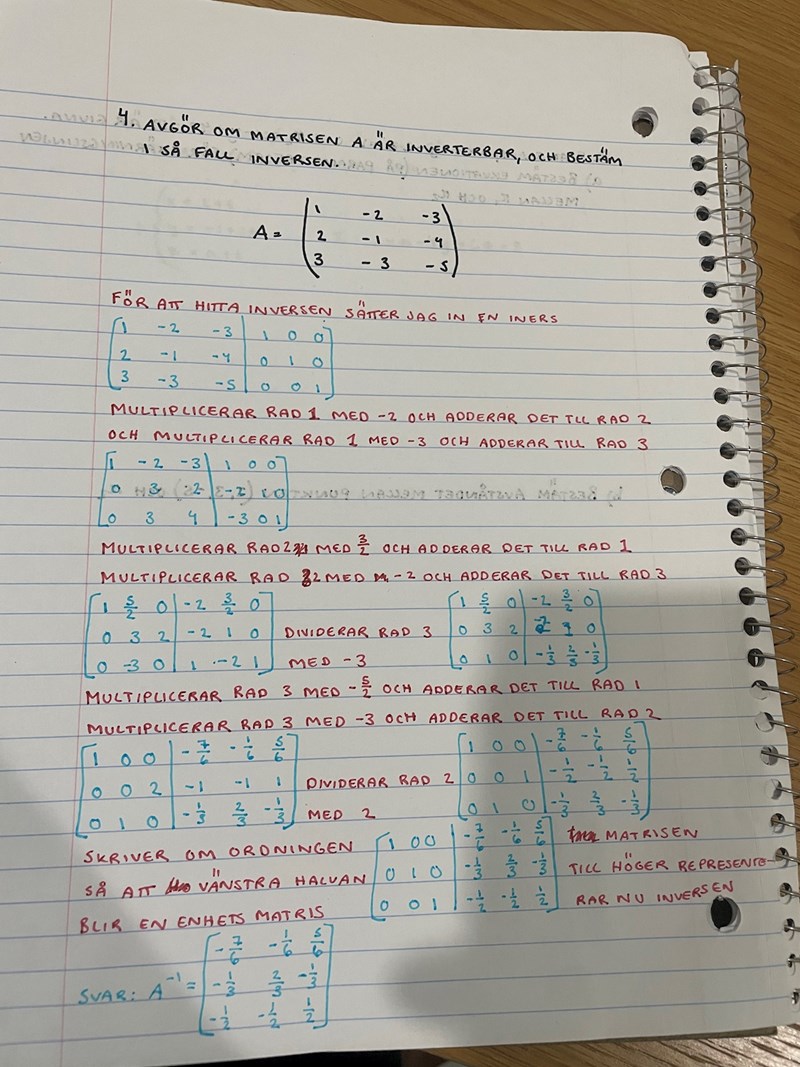 4. AVGÖR OM MATRISEN A ÄR INVERTERBAR, OCH BESTÄM
I SÅ FALL INVERSEN.
A = ( 1 -2 -3
2 -1 -4
3 -3 -5 )
FÖR ATT HITTA INVERSEN SÄTTER JAG IN EN INERS
[ 1 -2 -3 | 1 0 0
2 -1 -4 | 0 1 0
3 -3 -5 | 0 0 1 ]
MULTIPLICERAR RAD 1 MED -2 OCH ADDERAR DET TILL RAD 2
OCH MULTIPLICERAR RAD 1 MED -3 OCH ADDERAR TILL RAD 3
[ 1 -2 -3 | 1 0 0
0 3 2 | -2 1 0
0 3 4 | -3 0 1 ]
MULTIPLICERAR RAD 2 MED 3/2 OCH ADDERAR DET TILL RAD 1
MULTIPLICERAR RAD 2 MED -2 OCH ADDERAR DET TILL RAD 3
[ 1 5/2 0 | -2 3/2 0
0 3 2 | -2 1 0
0 -3 0 | 1 -2 1 ]
DIVIDERAR RAD 3
MED -3
[ 1 5/2 0 | -2 3/2 0
0 3 2 | -2 1 0
0 1 0 | -1/3 2/3 -1/3 ]
MULTIPLICERAR RAD 3 MED -5/2 OCH ADDERAR DET TILL RAD 1
MULTIPLICERAR RAD 3 MED -3 OCH ADDERAR DET TILL RAD 2
[ 1 0 0 | -7/6 -1/6 5/6
0 0 2 | -1 -1 1
0 1 0 | -1/3 2/3 -1/3 ]
DIVIDERAR RAD 2
MED 2
[ 1 0 0 | -7/6 -1/6 5/6
0 0 1 | -1/2 -1/2 1/2
0 1 0 | -1/3 2/3 -1/3 ]
SKRIVER OM ORDNINGEN
SÅ ATT VÄNSTRA HALVAN
BLIR EN ENHETS MATRIS
[ 1 0 0 | -7/6 -1/6 5/6
0 1 0 | -1/3 2/3 -1/3
0 0 1 | -1/2 -1/2 1/2 ]
MATRISEN
TILL HÖGER REPRESENTE-
RAR NU INVERSEN
SVAR: A^-1 = [ -7/6 -1/6 5/6
-1/3 2/3 -1/3
-1/2 -1/2 1/2 ]